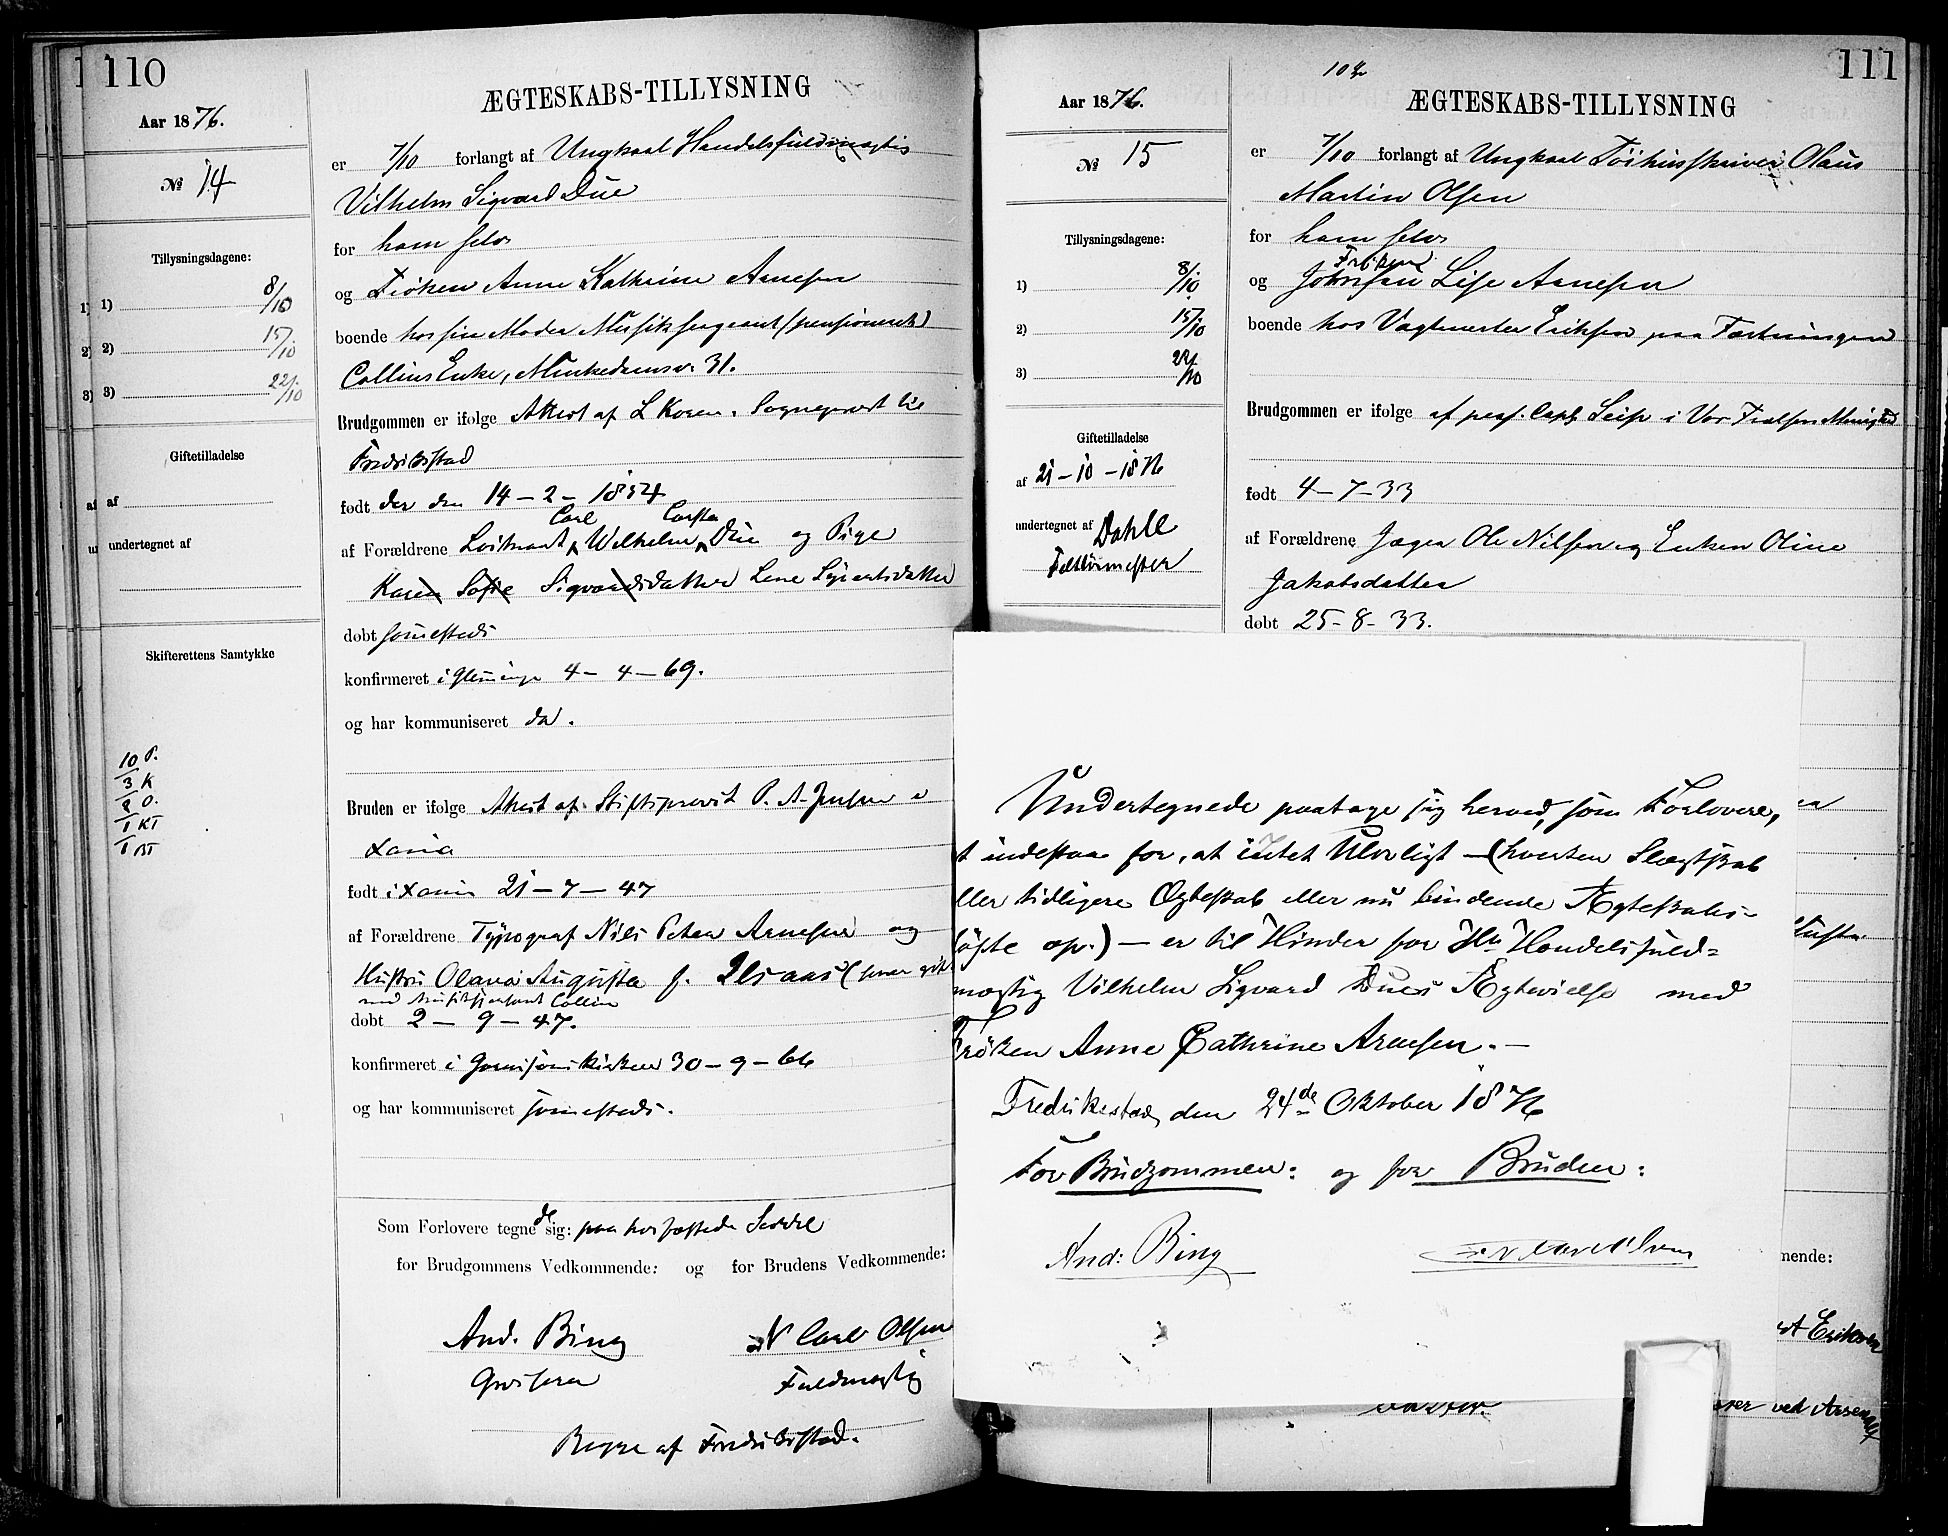 110
Aar 1876.
№ 14
Tillysningsdagene:
1) 8/10
2) 15/10
3) 22/10
Giftetilladelse
af
undertegnet af
Skifterettens Samtykke
10 P.
3 K
8 O.
1 KT
1 BT
ÆGTESKABS-TILLYSNING
er 7/10 forlangt af Ungkarl Handelsfuldmægtig
Vilhelm Sigvard Due
for ham selv
og Frøken Anne Kathrine Arnesen
boende hos sin Moder Musiksergeant (pensioneret)
Collins Enke, Munkedamsv. 31.
Brudgommen er ifølge Attest af L Koren, Sogneprest til
Fredriksstad
født der den 14-2-1854
Carl Carsten
af Forældrene Løitnant Wilhelm Due og Pige
Karen Sofie Sigvardsdatter Lene Sivertsdatter
døbt sammesteds
konfirmeret i Glemminge 4-4-69.
og har kommuniseret da.
Bruden er ifølge Attest af Stiftsprovst P. A. Jensen i
Xania
født i Xania 21-7-47
af Forældrene Typograf Nils Peter Arnesen og
Hustru Olava Augusta f.
med Musiksersjant Collin
døbt 2-9-47.
konfirmeret i Garnisonskirken 30-9-66
og har kommuniseret sammesteds.
Som Forlovere tegnede sig: paa hosheftede Seddel
for Brudgommens Vedkommende: og for Brudens Vedkommende:
And. Bing N Carl Olsen
Grosserer Fuldmægtig
Begge af Fredriksstad.
111
102
Aar 1876.
№ 15
Tillysningsdagene:
1) 8/10
2) 15/10
3) 22/10
Giftetilladelse
af 21-10-1876
undertegnet af Dahll
Felttøimester
ÆGTESKABS-TILLYSNING
er 7/10 forlangt af Ungkarl Tøihusskriver Olaus
Martin Olsen
for ham selv
Frøken
og Lise Arnesen
boende hos Vagtmester Eriksen paa Fæstningen
Brudgommen er ifølge af pers. Capl. Seip i Vor Frelsers Menighed
født 4-7-33
af Forældrene Jæger Ole Nilsen og Enken Oline
Jakobsdatter
døbt 25-8-33.
Undertegnede paatage sig herved, som Forlovere,
t indestaa for, at intet Ulovligt - (hverken Slægtskab
ller tidligere Ægteskab eller nu bindende Ægteskabs-
løfte op.) - er til Hinder for Hr Handelsfuld-
mægtig Vilhelm Sigvard Dues Ægtevielse med
Frøken Anne Cathrine Arnesen. -
Fredrikstad, den 24de Oktober 1876
For Brudgommen: og for Bruden:
And: Bing N Carl Olsen
mende:
Eriksen
ved Arsenalet